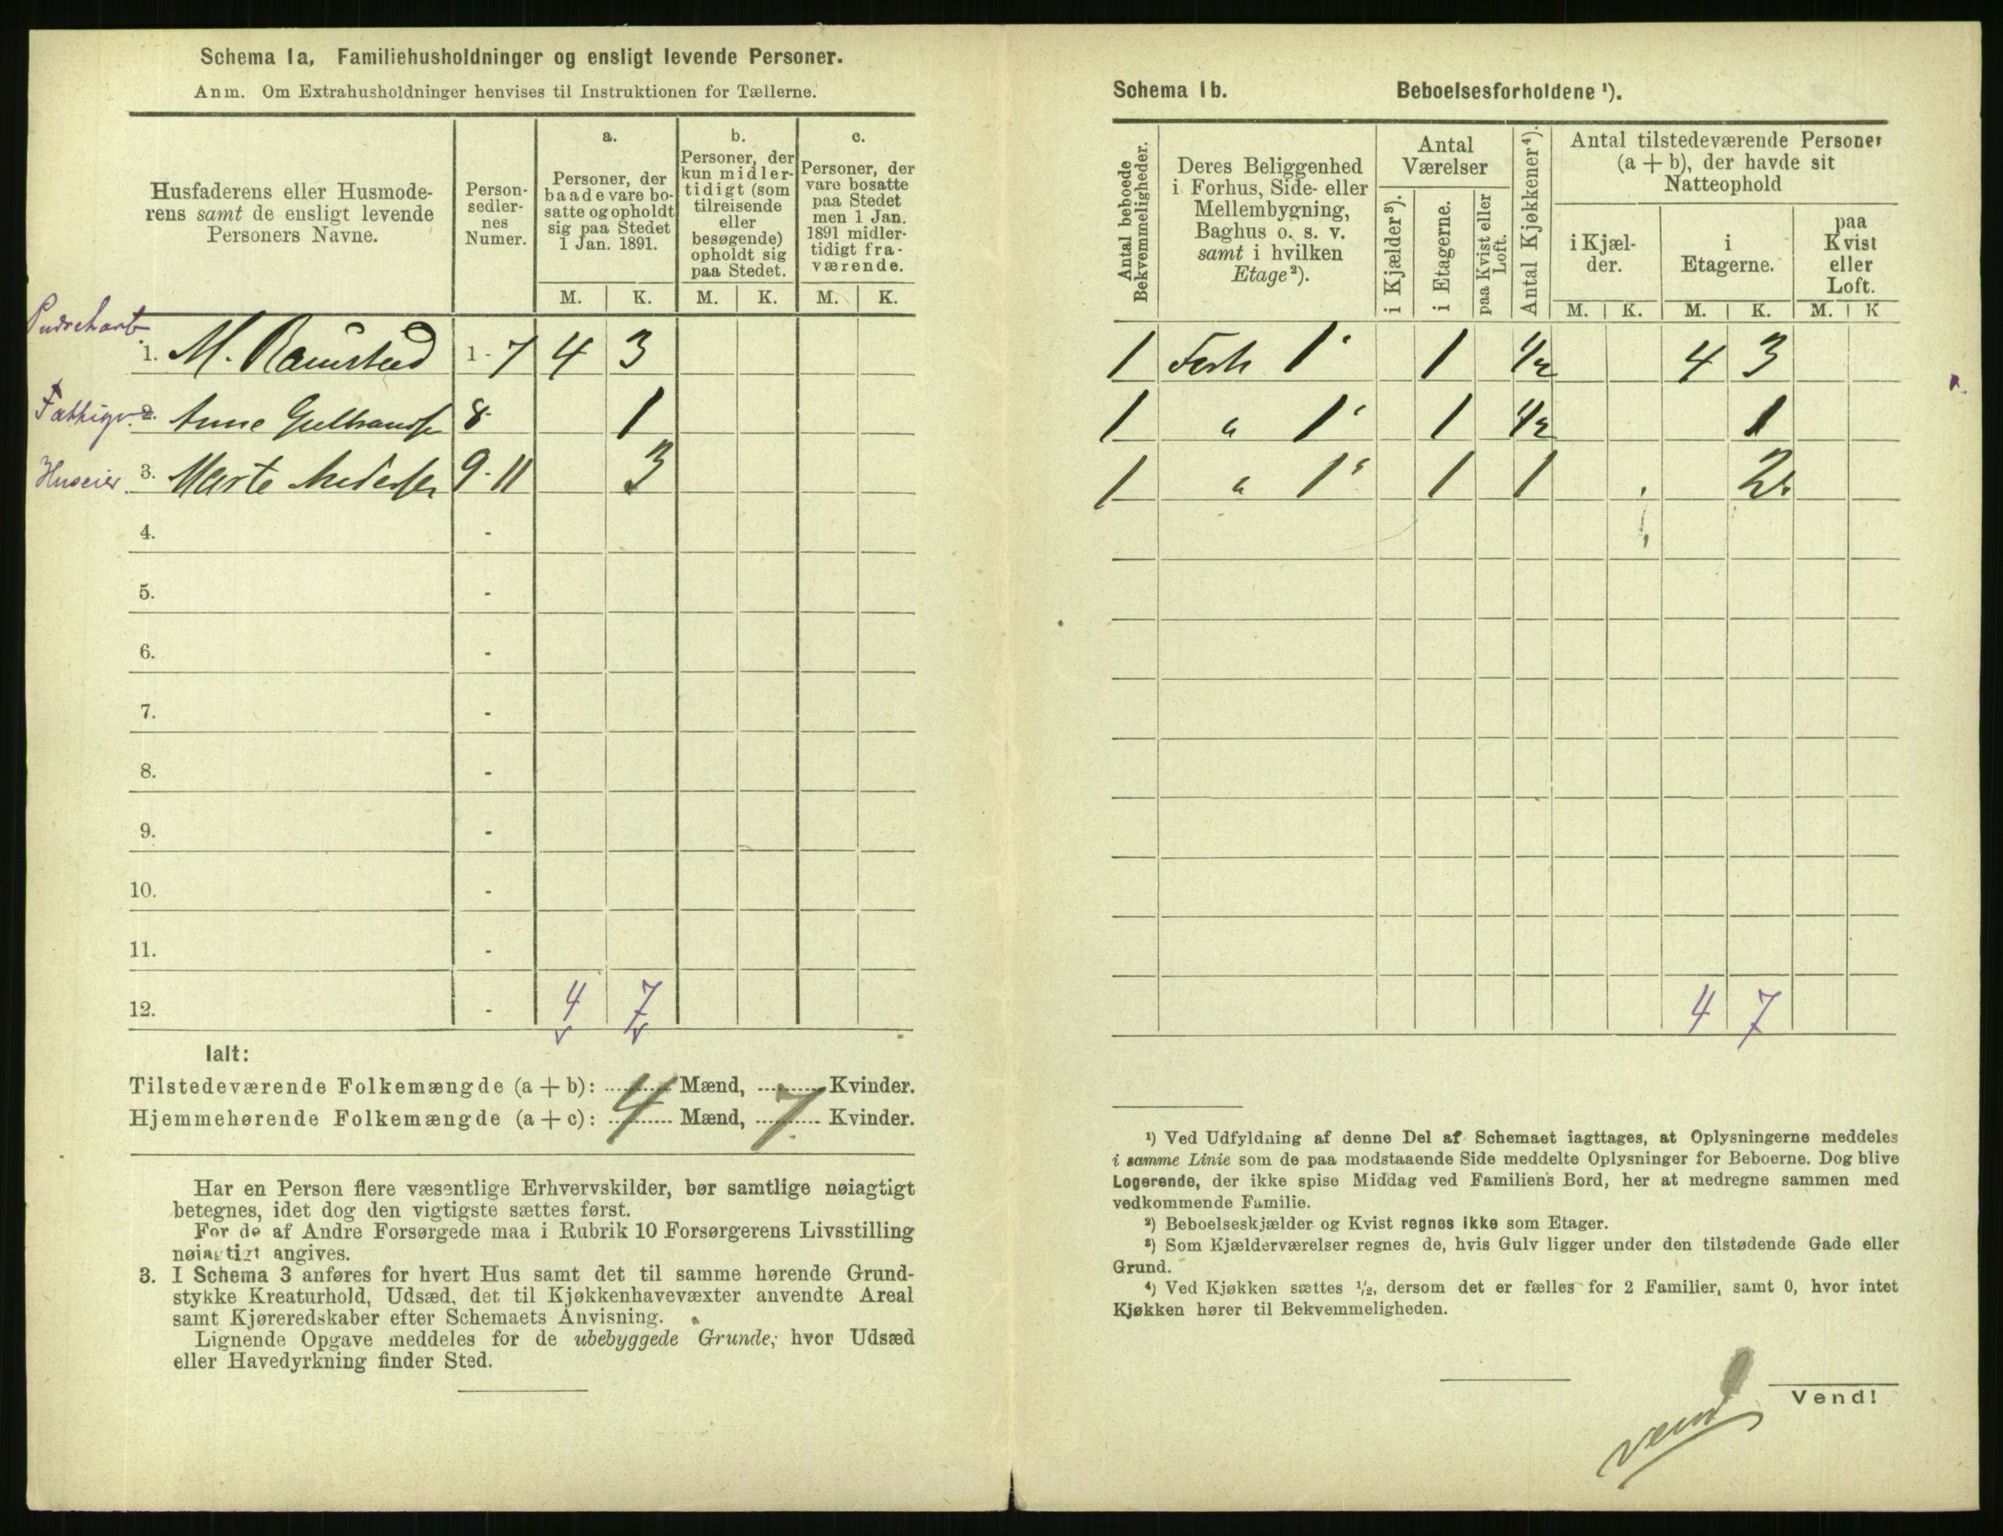 Schema 1a, Familiehusholdninger og ensligt levende Personer.
Anm. Om Extrahusholdninger henvises til Instruktionen for Tællerne.
Husfaderens eller Husmoderens samt de ensligt levende Personers Navne.
Personsedlernes Numer.
a.
Personer, der baade vare bosatte og opholdt sig paa Stedet 1 Jan. 1891.
b.
Personer, der kun midlertidigt (som tilreisende eller besøgende) opholdt sig paa Stedet.
c.
Personer, der vare bosatte paa Stedet men 1 Jan. 1891 midlertidigt fraværende.
M. K. M. K. M. K.
1. M. Ramstad 1 - 7 4 3
Fattigv. 2. Anne Gulbrands 8 - 1
Huseier. 3. Marte Anders 9 - 11 3
4. -
5. -
6. -
7. -
8. -
9. -
10. -
11. -
12. - 4 7
Ialt:
Tilstedeværende Folkemængde (a + b): 4 Mænd, 7 Kvinder.
Hjemmehørende Folkemængde (a + c): Mænd, Kvinder.
Har en Person flere væsentlige Erhvervskilder, bør samtlige nøiagtigt
betegnes, idet dog den vigtigste sættes først.
For de af Andre Forsørgede maa i Rubrik 10 Forsørgerens Livsstilling
nøiagtigt angives.
3. I Schema 3 anføres for hvert Hus samt det til samme hørende Grund-
stykke Kreaturhold, Udsæd, det til Kjøkkenhavevæxter anvendte Areal
samt Kjøreredskaber efter Schemaets Anvisning.
Lignende Opgave meddeles for de ubebyggede Grunde, hvor Udsæd
eller Havedyrkning finder Sted.
Schema 1b. Beboelsesforholdene ¹).
Antal beboede Bekvemmeligheder.
Deres Beliggenhed i Forhus, Side- eller Mellembygning, Baghus o. s. v. samt i hvilken Etage ²).
Antal Værelser
i Kjælder ³).
i Etagerne.
paa Kvist eller Loft.
Antal Kjøkkener ⁴).
Antal tilstedeværende Personer (a + b), der havde sit Natteophold
i Kjælder.
i Etagerne.
paa Kvist eller Loft.
M. K. M. K. M. K
1 Forh 1' 1 1/2 4 3
1 " 1' 1 1/2 1
1 " 1' 1 1 2
4 7
¹) Ved Udfyldning af denne Del af Schemaet iagttages, at Oplysningerne meddeles
i samme Linie som de paa modstaaende Side meddelte Oplysninger for Beboerne. Dog blive
Logerende, der ikke spise Middag ved Familiens Bord, her at medregne sammen med
vedkommende Familie.
²) Beboelseskjælder og Kvist regnes ikke som Etager.
³) Som Kjælderværelser regnes de, hvis Gulv ligger under den tilstødende Gade eller
Grund.
⁴) Ved Kjøkken sættes ½, dersom det er fælles for 2 Familier, samt 0, hvor intet
Kjøkken hører til Bekvemmeligheden.
Vend!
vend